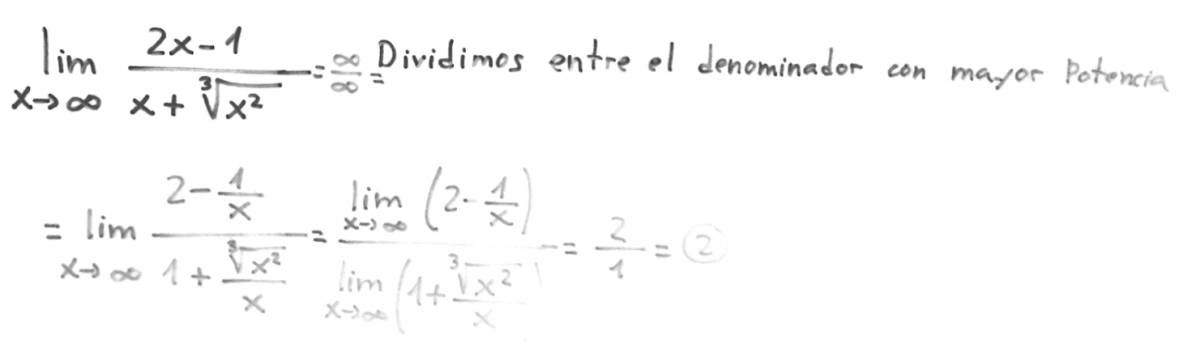 lim x→∞ (2x-1)/(x+∛x²) = ∞/∞ = Dividimos entre el denominador con mayor Potencia
= lim x→∞ (2-1/x)/(1+∛x²/x) = lim x→∞ (2-1/x) / lim x→∞ (1+∛x²/x) = 2/1 = 2